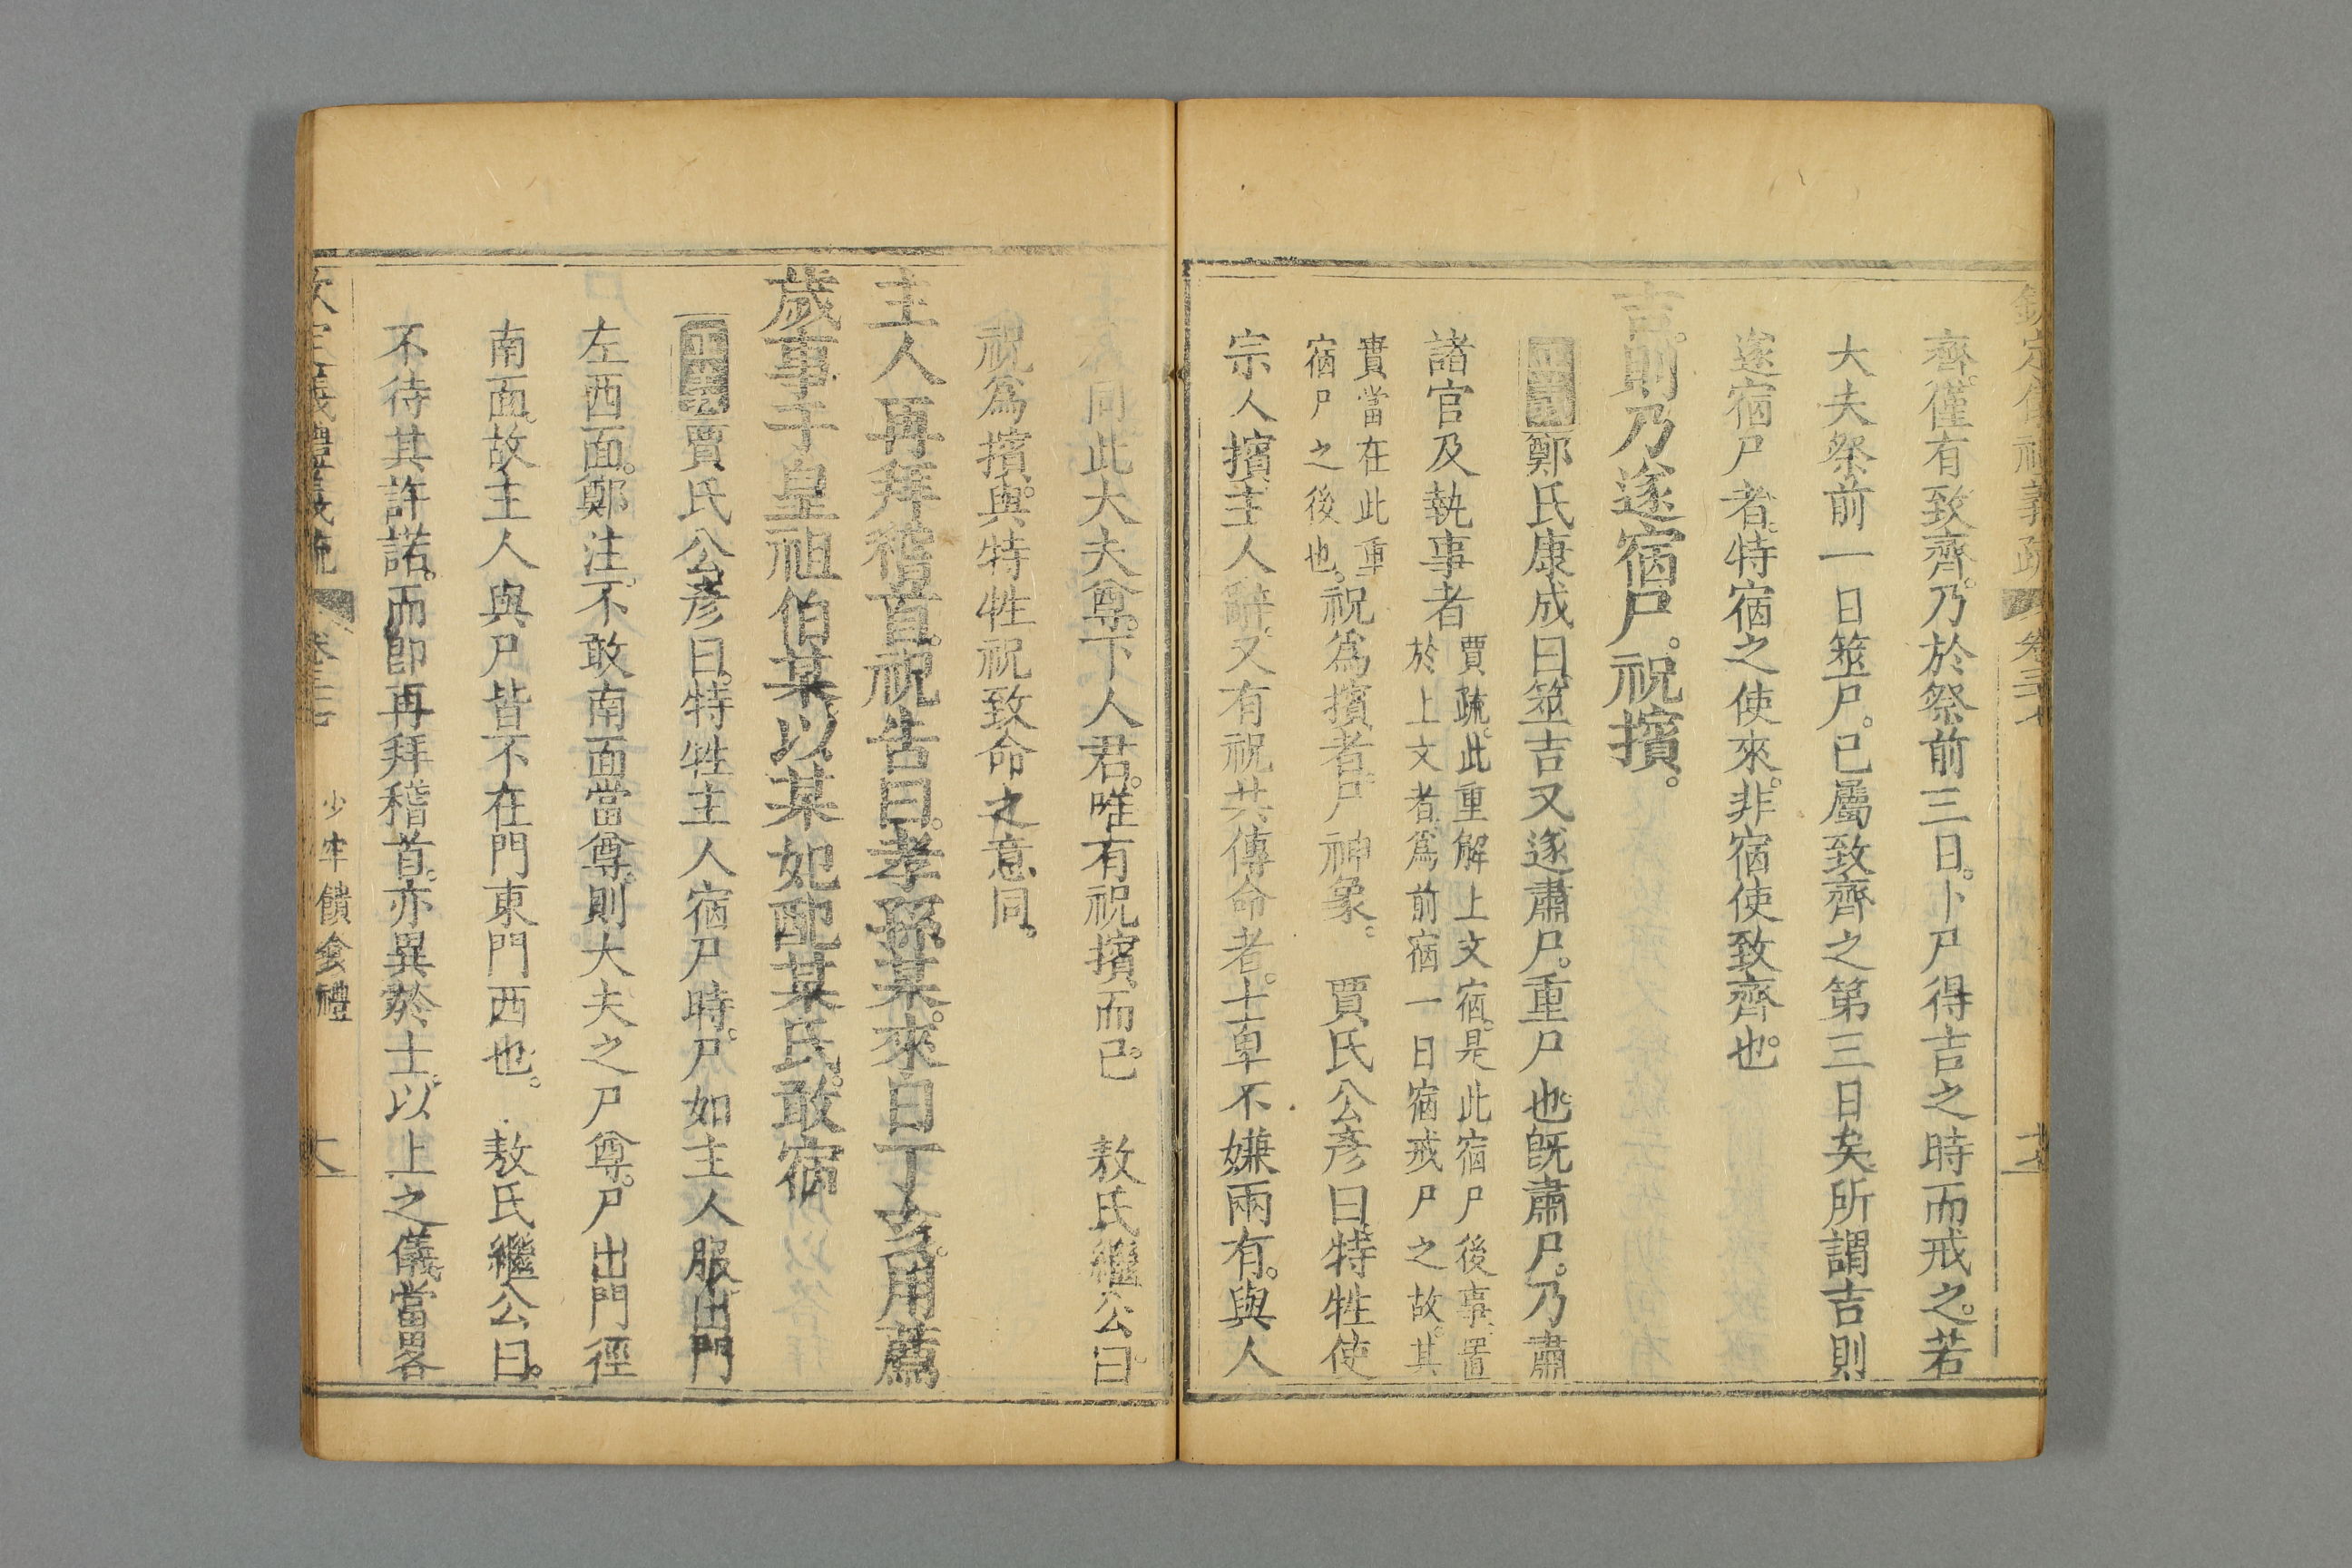 欽定儀禮義疏 卷三十七
齊。僅有致齊。乃於祭前三日。卜尸得吉之時而戒之。若
大夫祭前一日筮尸。已屬致齊之第三日矣。所謂吉則
遂宿尸者。特宿之使來。非宿使致齊也。
吉。則乃遂宿尸。祝擯。
正義鄭氏康成曰。筮吉又遂肅尸。重尸也。旣肅尸。乃肅
諸官及執事者賈疏。此重解上文宿。是此宿尸後事。置
於上文者。爲前宿一日宿戒尸之故。其
實當在此重
宿尸之後也。祝爲擯者。尸神象。 賈氏公彥曰。特牲使
宗人擯。主人辭。又有祝共傳命者。士卑不嫌兩有。與人
同此大夫尊。下人君。唯有祝擯而已。 敖氏繼公曰。
祝爲擯。與特牲祝致命之意同。
主人再拜稽首。祝告曰。孝孫某。來日丁亥。用薦
歲事于皇祖伯某。以某妃配某氏。敢宿
正義賈氏公彥曰。特牲主人宿尸時。尸如主人服。出門
左西面。鄭注。不敢南面當尊。則大夫之尸尊。尸出門徑
南面。故主人與尸皆不在門東門西也。 敖氏繼公曰。
不待其許諾。而卽再拜稽首。亦異於士。以上之儀。當畧
欽定儀禮義疏 卷三十七 少牢饋食禮